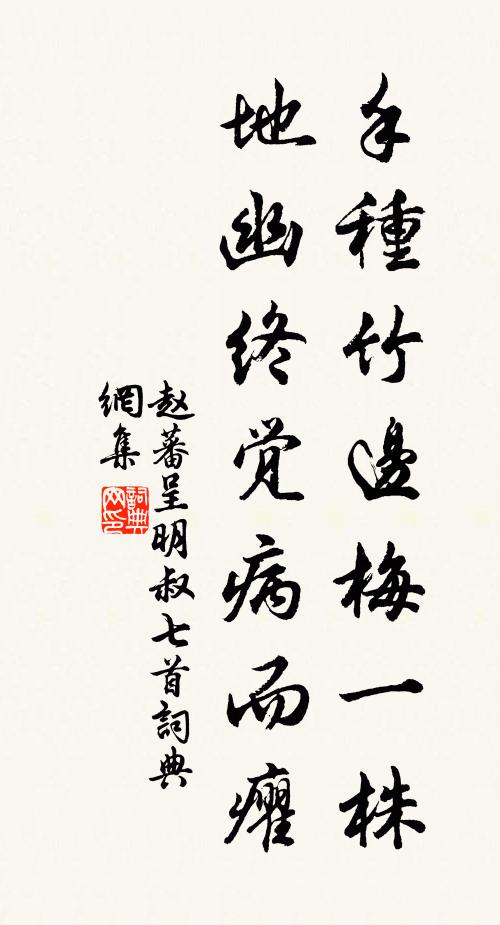 手種竹邊梅一株
地幽终觉病而癯
赵蕃呈明叔七首詞典
網集
詞典
网印